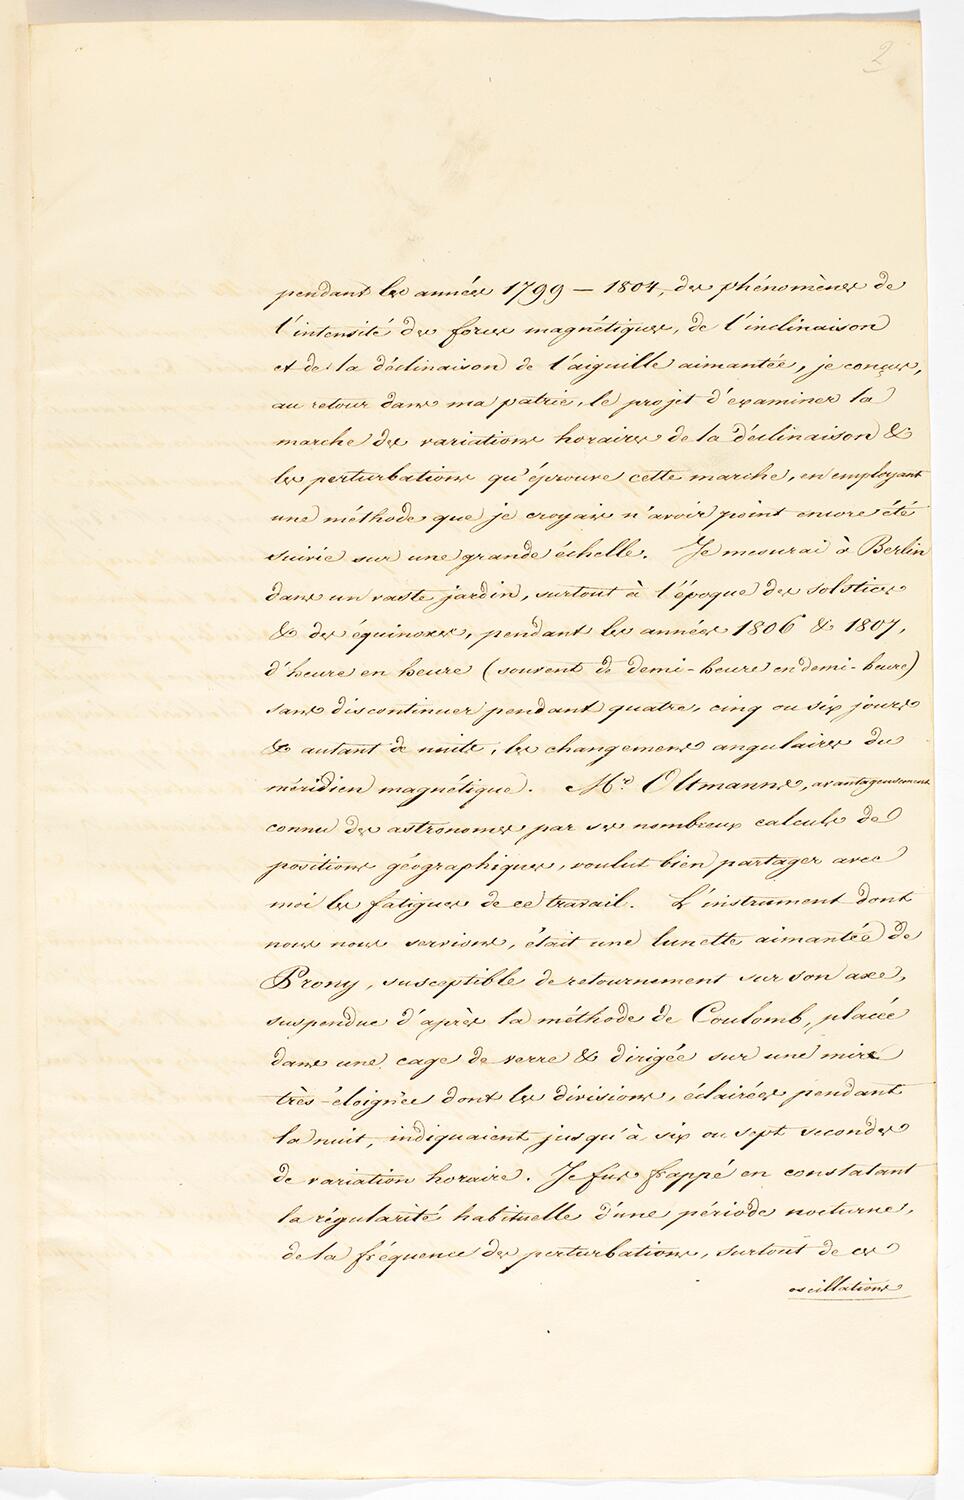 2
pendant les années 1799 – 1804, des phénomènes de
l'intensité des forces magnétiques, de l'inclinaison
et de la déclinaison de l'aiguille aimantée, je conçus,
au retour dans ma patrie, le projet d'examiner la
marche des variations horaires de la déclinaison &
les perturbations qu'éprouve cette marche, en employant
une méthode que je croyais n'avoir point encore été
suivie sur une grande échelle. Je mesurai à Berlin
dans un vaste jardin, surtout à l'époque des solstices
& des équinoxes, pendant les années 1806 & 1807,
d'heure en heure (souvent de demi-heure en demi-heure)
sans discontinuer pendant quatre, cinq ou six jours
& autant de nuits, les changemens angulaires du
méridien magnétique. Mr. Oltmanns, avantageusement
connu des astronomes par ses nombreux calculs de
positions géographiques, voulut bien partager avec
moi les fatigues de ce travail. L'instrument dont
nous nous servions, était une lunette aimantée de
Prony, susceptible de retournement sur son axe,
suspendue d'après la méthode de Coulomb, placée
dans une cage de verre & dirigée sur une mire
très-éloignée dont les divisions, éclairées pendant
la nuit, indiquaient jusqu'à six ou sept secondes
de variation horaire. Je fus frappé en constatant
la régularité habituelle d'une période nocturne,
de la fréquence des perturbations, surtout de ces
oscillations